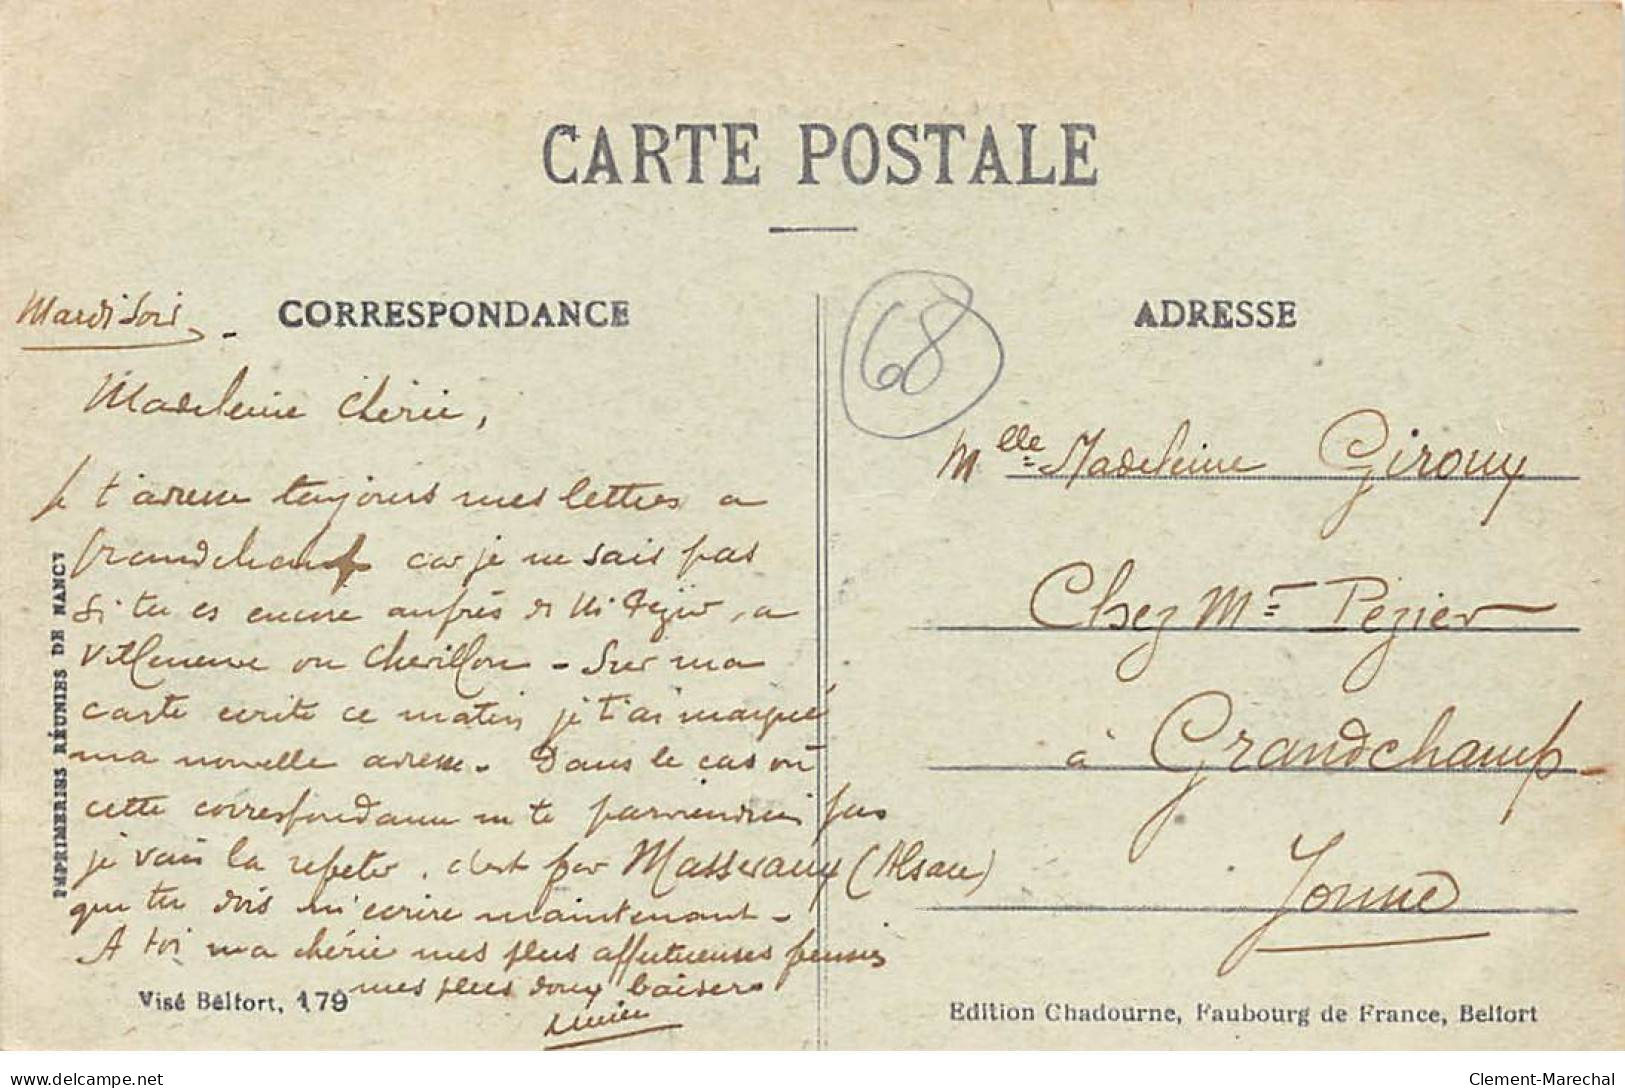 CARTE POSTALE
CORRESPONDANCE
ADRESSE
68
Mardi soir
Madeleine chérie,
Je t'adresse toujours mes lettres a
Grandchamp car je ne sais pas
si tu es encore auprès de Mr Pezier, a
Villeneuve ou Chevillon - Sur ma
carte ecrite ce matin je t'ai marqué
ma nouvelle adresse. Dans le cas où
cette correspondance ne te parviendrai pas
je vais la repeter, c'est par Massevaux (Alsace)
que tu dois m'ecrire maintenant -
A toi ma chérie mes plus affectueuses pensées
mes plus doux baisers
Lucien
Mlle Madeleine Girouy
Chez Mr Pezier
à Grandchamp
Yonne
IMPRIMERIES RÉUNIES DE NANCY
Visé Belfort, 179
Edition Chadourne, Faubourg de France, Belfort
www.delcampe.net
Clement-Marechal